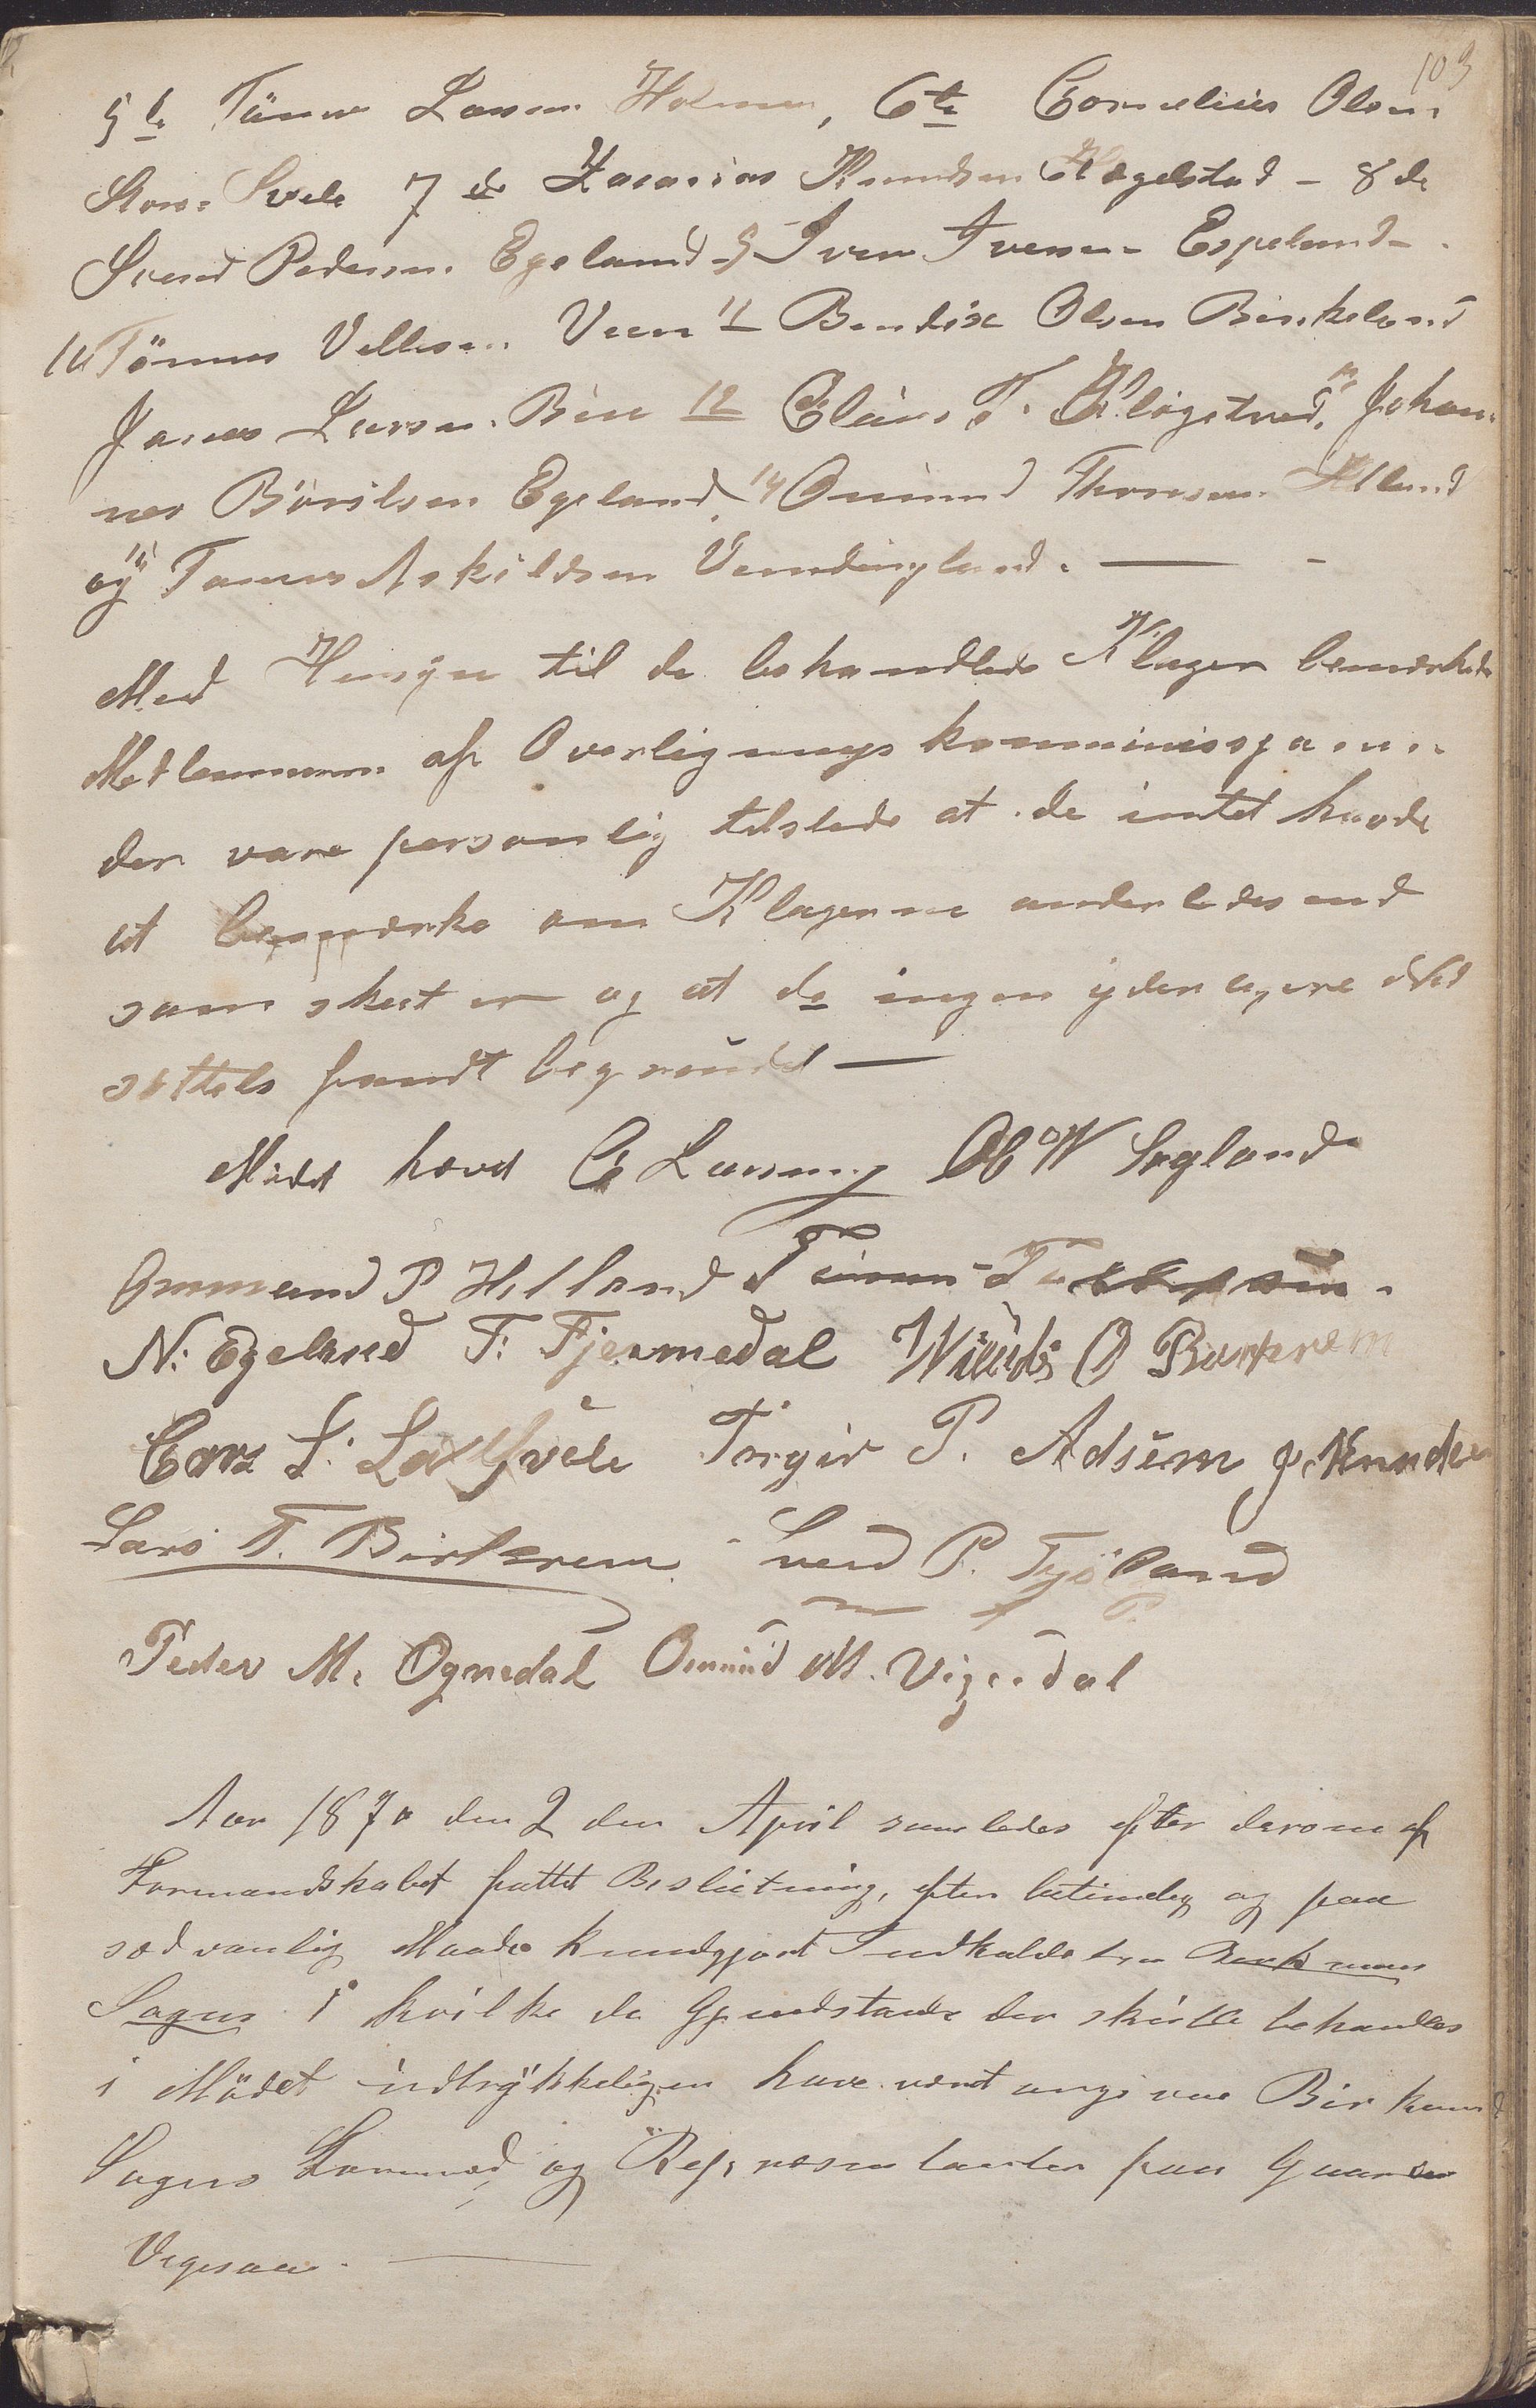 103
5te Tönnes Larsen Holmen, 6te Cornelius Olsen
Store Svele 7de Zacarias Knudsen Hægelstad - 8de
Svend Pedersen Egeland 9 Iven Ivensen Espeland -
10 Tönnes Vellesen Veen 11 Bendix Olsen Birkeland
Jonas Larsen Bue 12 Claus T. Kløgetvedt, 13 Johan-
nes Børilsen Egeland, 14 Omund Thorsen Helland
og 15 Tønnes Askildsen Vemdingland. —
Med Hensyn til de behandlede Klager bemærkede
Medlemmerne af Overligningskommissjonen
der vare personlig tilstede at de intet havde
at bemærke om Klagerne anderledes end
som skeet er og at de ingen yderligere Ned
sættels fandt begrundet —
Mødet hævet C Larsen Ol W Søyland
Ommund P Helland
N. Egeland T. Fjermedal O Birkrem
L. Svele Torger P. Adsem J. Knudsen
Lars T. Birkrem Svend P. Tjöland
Peder M. Ognedal Omund M. Vigesdal
Aar 1870 den 2den April samledes efter derom af
Formandskabet fattet Beslutning, efter betimelig og paa
sædvanlig Maade kundgjort Indkaldelse Birkrems
Sogns i hvilke de Gjendstande der skulle behandles
i Mödet udtrykkeligen have været angivne Birkrems
Sogns Formænd og Repræsentanter paa Gaarden
Vigesaa. —